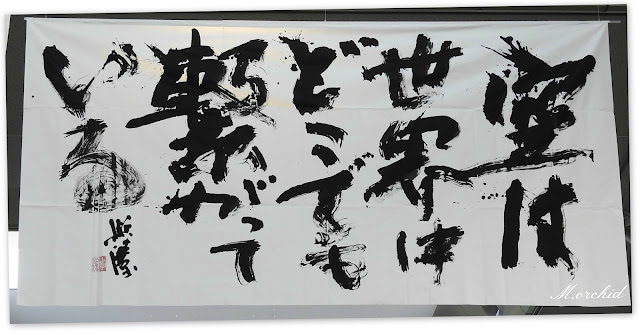 空は
世界は
どこでも
繋がって
いる
M.orchid